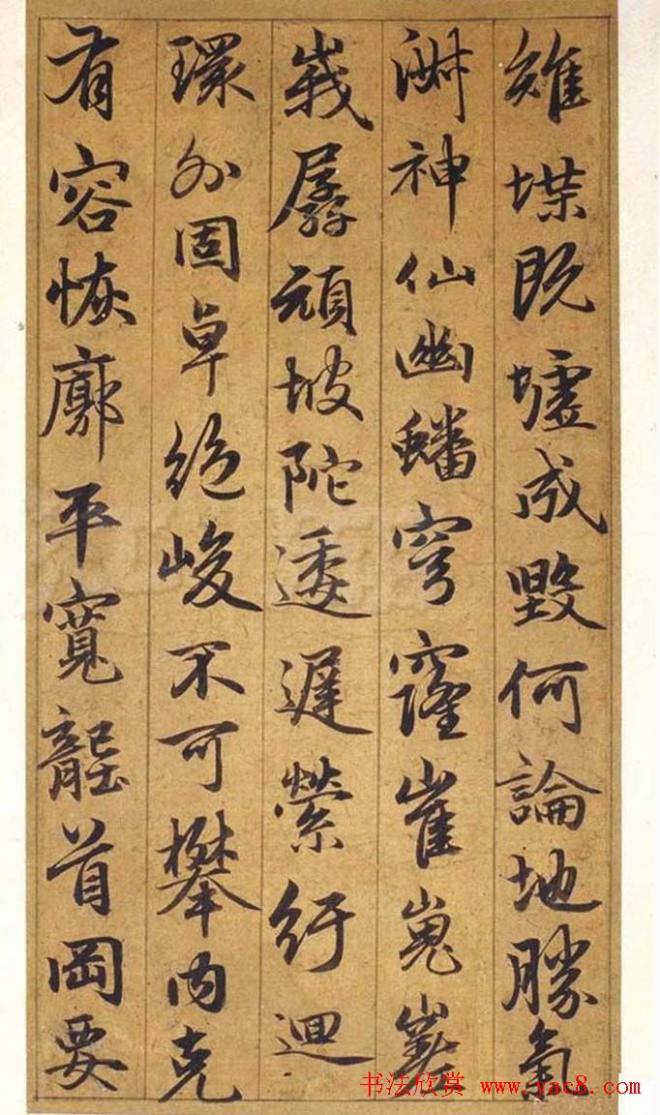 雉堞既墟成毀何論地勝氣
淋神仙幽蟠穹窿崔嵬嵳
峩孱頑坡陀逶遲縈紆迴
環外固卓絕峻不可攀內克
有容恢廓平寬壟首岡要
书法欣赏 www.yac8.com